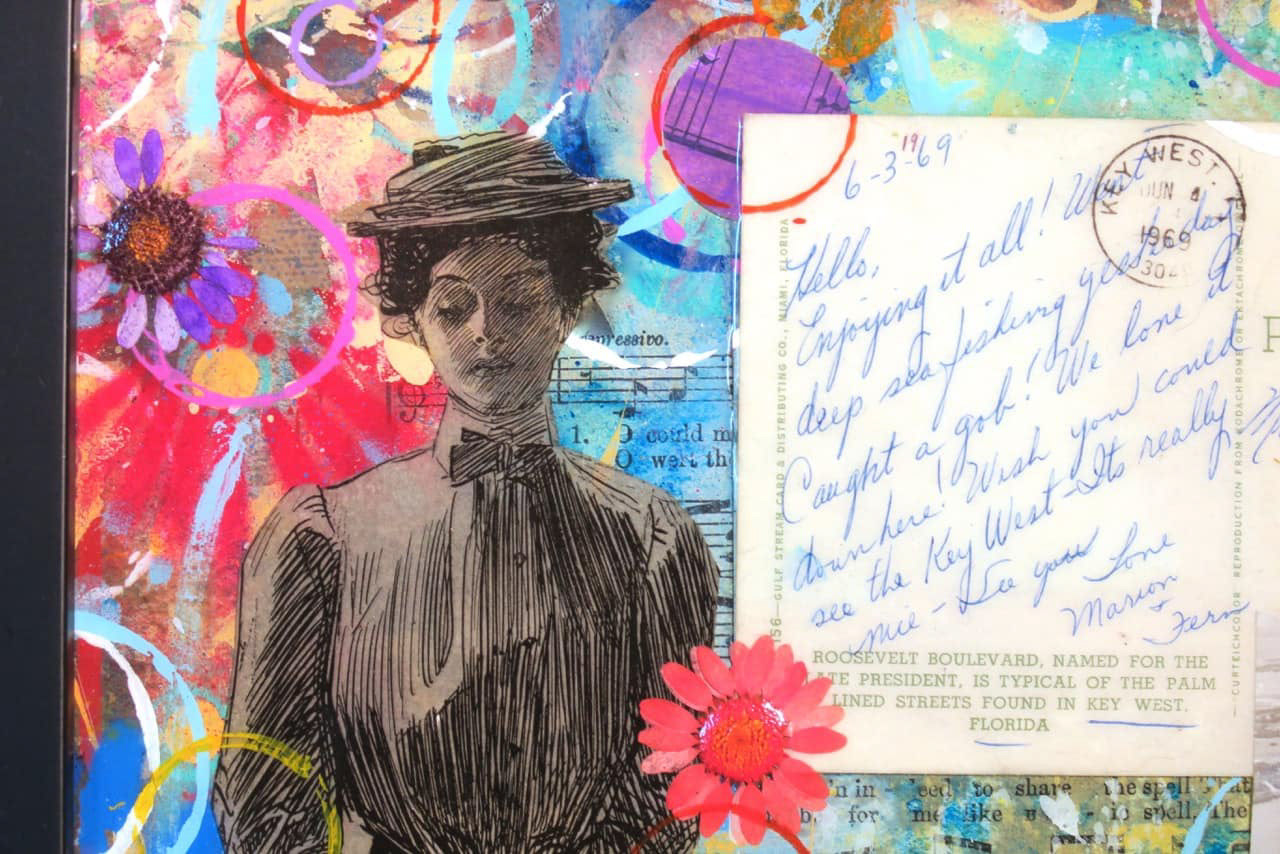 6-3-1969
KEY WEST.
JUN 4
1969
Hello,
Enjoying it all! Went
deep sea fishing yesterday
Caught a gob! We love it
down here! Wish you could
see the Key West - Its really
nice - See you
Love
Marion
+ Fern
ROOSEVELT BOULEVARD, NAMED FOR THE
ATE PRESIDENT, IS TYPICAL OF THE PALM
LINED STREETS FOUND IN KEY WEST.
FLORIDA
156—GULF STREAM CARD & DISTRIBUTING CO., MIAMI, FLORIDA
CURTEICHCOLOR REPRODUCTION FROM KODACHROME OR EKTACHROME
pressivo.
1. O could m
O wert th
n in - eed to share the spell
b, for me like - is spell. The